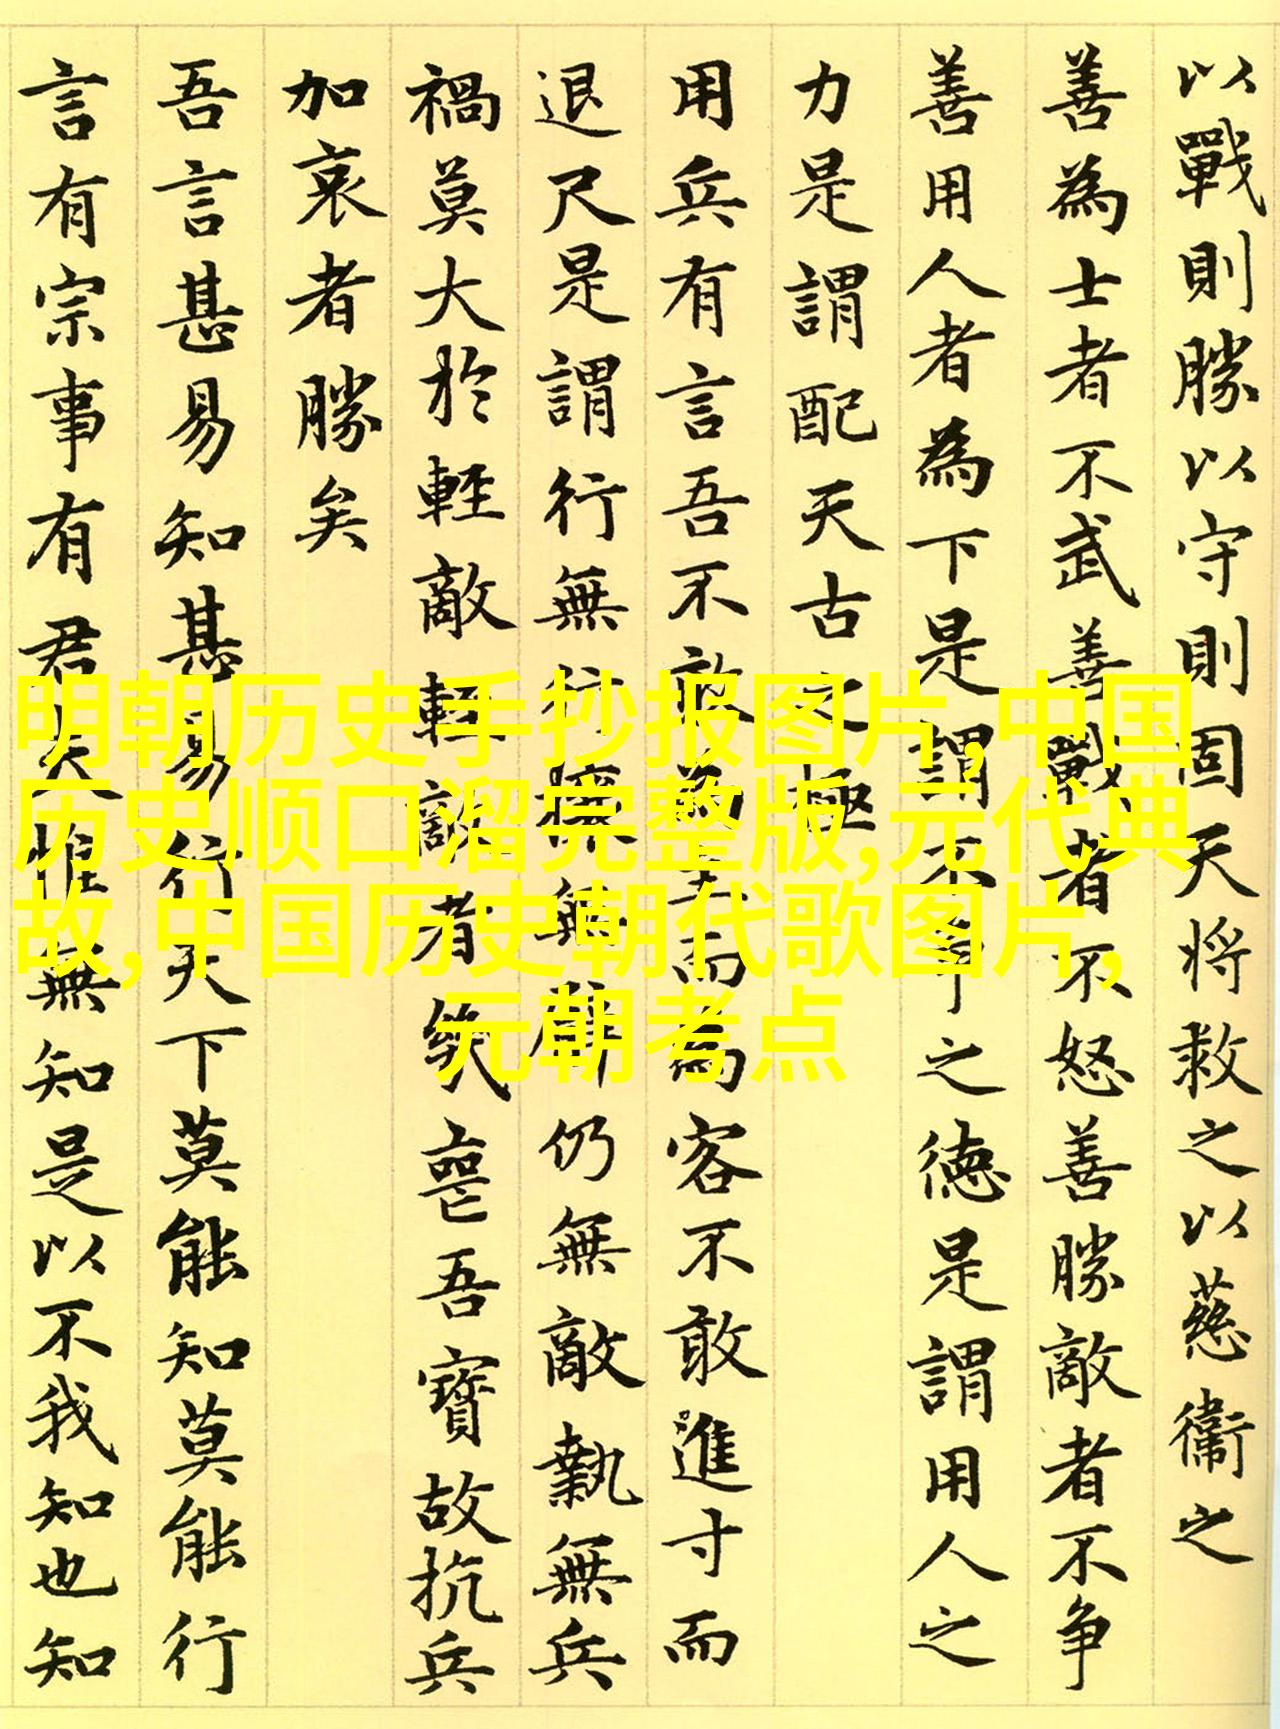 以戰則勝以守則固天將救之以慈衞之
善為士者不武善戰者不怒善勝敵者不争
善用人者為下是謂不争之德是謂用人之
力是謂配天古之極
用兵有言吾不敢為主而為客不敢進寸而
退尺是謂行無行攘無臂仍無敵執無兵
禍莫大於輕敵輕敵者幾喪吾寶故抗兵
加哀者勝矣
吾言甚易知甚易行天下莫能知莫能行
言有宗事有君夫惟無知是以不我知也知
明朝历史手抄报图片,中国
历史顺口溜完整版,元代典
故,中国历史朝代歌图片,
元朝考点